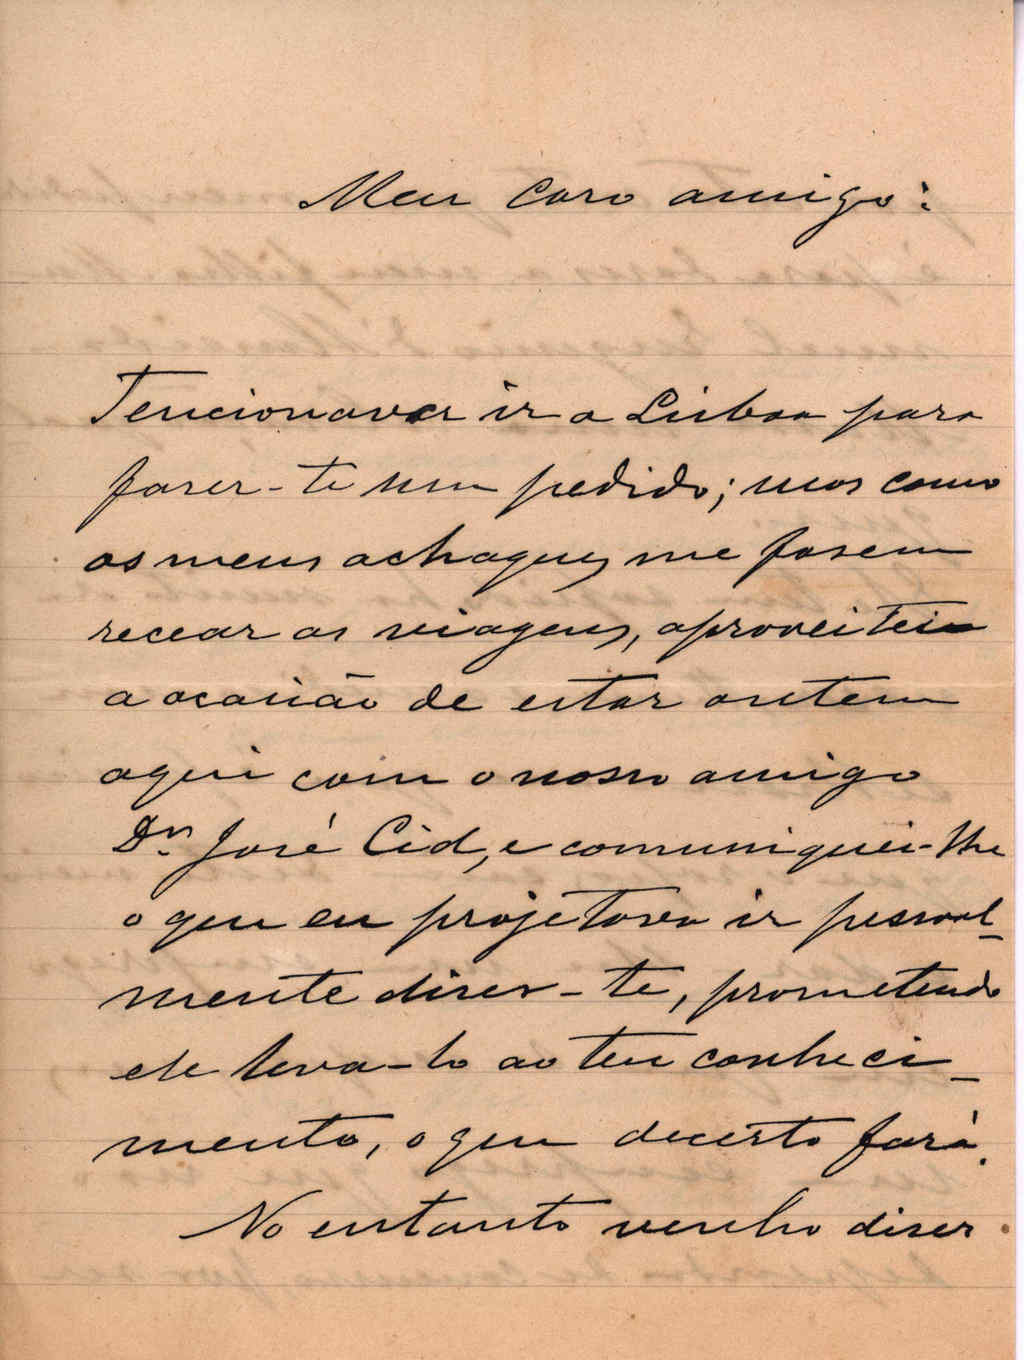 Meu caro amigo:
Tencionava ir a Lisboa para
faser-te um pedido; mas como
os meus achaques me fasem
recear as viagens, aproveitei
a ocasião de estar ontem
aqui com o nosso amigo
Dr. José Cid, e comuniquei-lhe
o que eu projetava ir pessoal-
mente diser-te, prometendo
ele leva-lo ao teu conheci-
mento, o que decerto fará.
No entanto venho diser